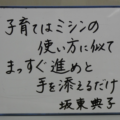 子育てはミシンの
使い方に似て
まっすぐ進めと
手を添えるだけ
坂東典子